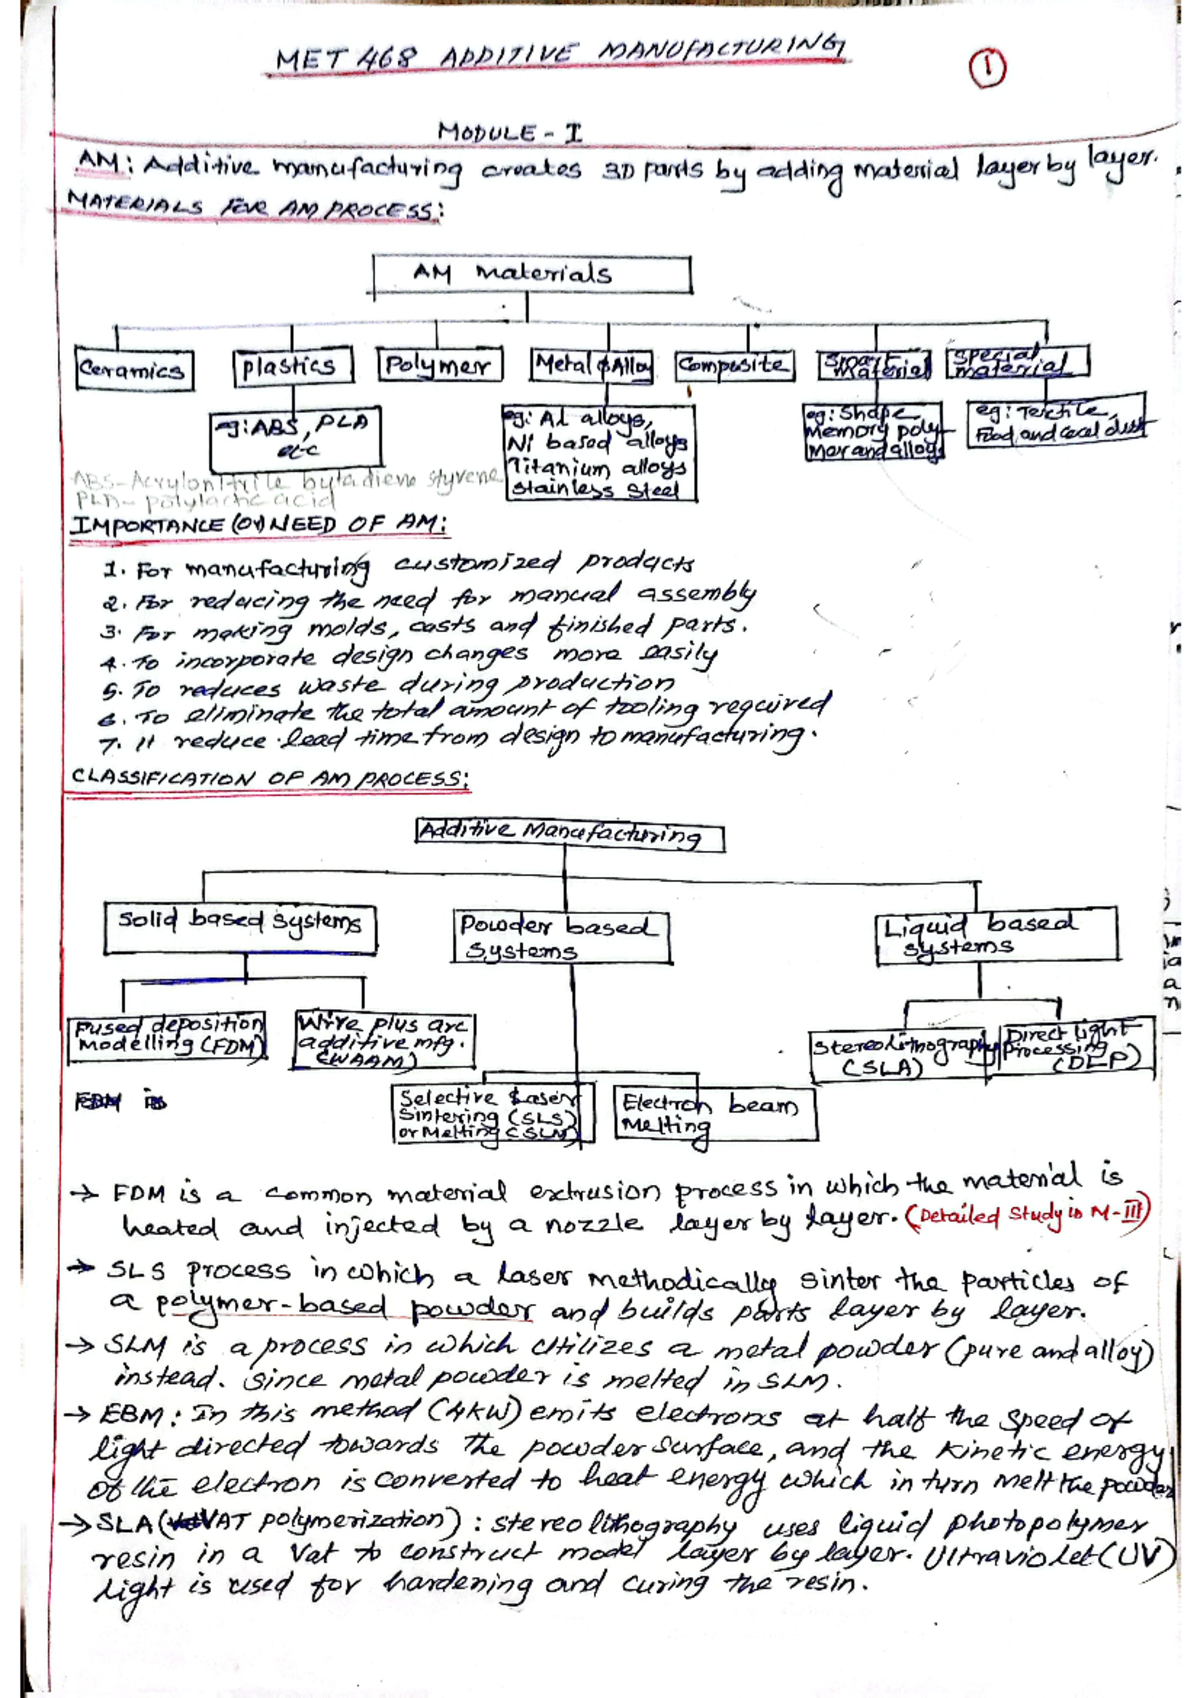 MET 468 ADDITIVE MANUFACTURING
1
MODULE - I
AM: Additive manufacturing creates 3D parts by adding material layer by layer.
MATERIALS FOR AM PROCESS:
AM materials
Ceramics
plastics
Polymer
Metal & Alloy
Composite
Smart Material
special material
eg: ABS, PLA
etc
eg: Al alloys,
Ni based alloys
Titanium alloys
stainless steel
eg: Shape
Memory poly-
mer and alloys
eg: Textile,
Food, and
ABS-Acrylonitrile butadiene styrene
PLA- polylactic acid
IMPORTANCE (or) NEED OF AM:
1. For manufacturing customized products
2. For reducing the need for manual assembly
3. For making molds, casts and finished parts.
4. To incorporate design changes more easily
5. To reduces waste during production
6. To eliminate the total amount of tooling required
7. It reduce lead time from design to manufacturing.
CLASSIFICATION OF AM PROCESS:
Additive Manufacturing
Solid based systems
Powder based
Systems
Liquid based
systems
Fused deposition
Modelling (FDM)
Wire plus arc
additive mfg.
(WAAM)
Stereolithography
(SLA)
Direct light
Processing
(DLP)
Selective Laser
Sintering (SLS)
or Melting (SLM)
Electron beam
Melting
→ FDM is a common material extrusion process in which the material is
heated and injected by a nozzle layer by layer. (Detailed Study in M-III)
→ SLS process in which a laser methodically sinter the particles of
a polymer-based powder and builds parts layer by layer.
→ SLM is a process in which utilizes a metal powder (pure and alloy)
instead. Since metal powder is melted in SLM.
→ EBM: In this method (4KW) emits electrons at half the speed of
light directed towards the powder surface, and the kinetic energy
of the electron is converted to heat energy which in turn melt the powder
→ SLA (VAT polymerization) : stereolithography uses liquid photopolymer
resin in a vat to construct model layer by layer. Ultraviolet (UV)
light is used for hardening and curing the resin.